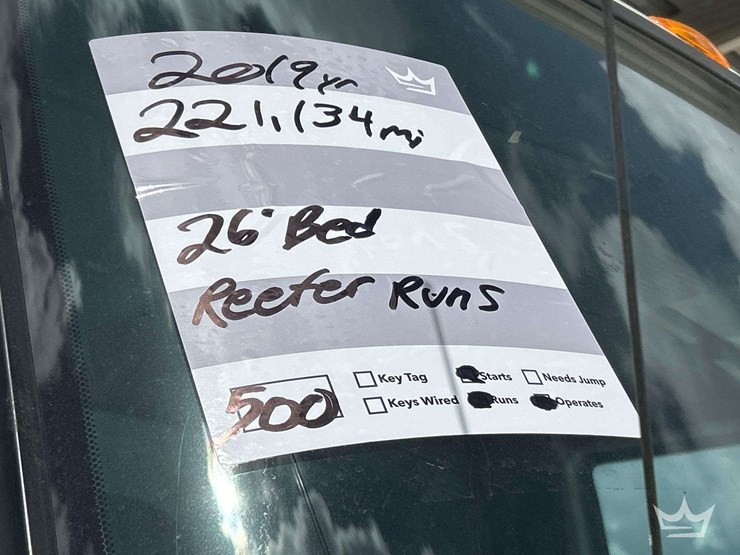 2019 yr
221,134 mi
26' Bed
Reefer Runs
500
Key Tag Starts Needs Jump
Keys Wired Runs Operates